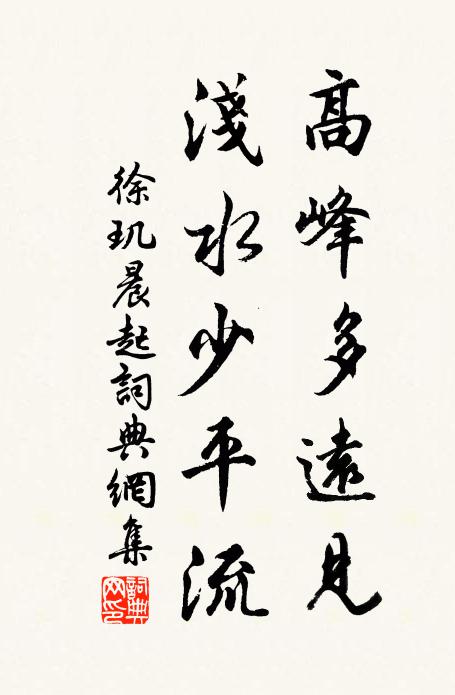 高峰多遠見
淺水少平流
徐玑晨起詞典網集
詞典网印